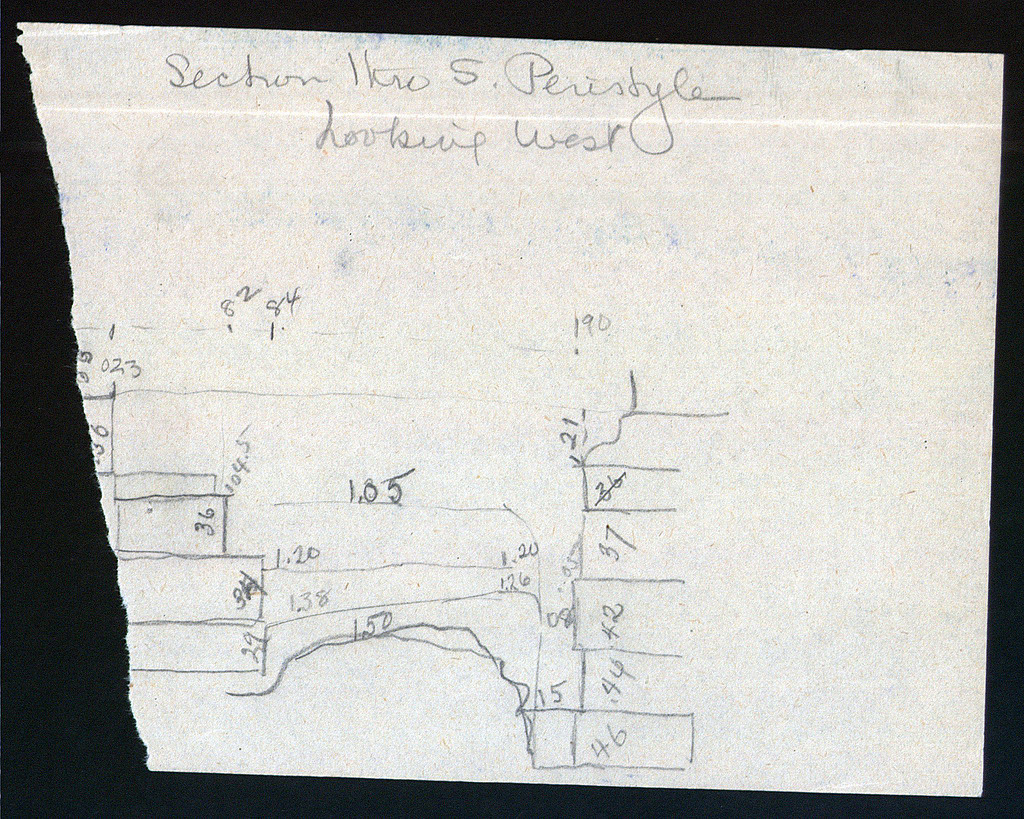 Section thro S. Peristyle
Looking West
82 84
190
023
.21
36
04.5
1.05
36
37
1.20 1.20
1.26
1.38
42
1.50
29
.44
15
46